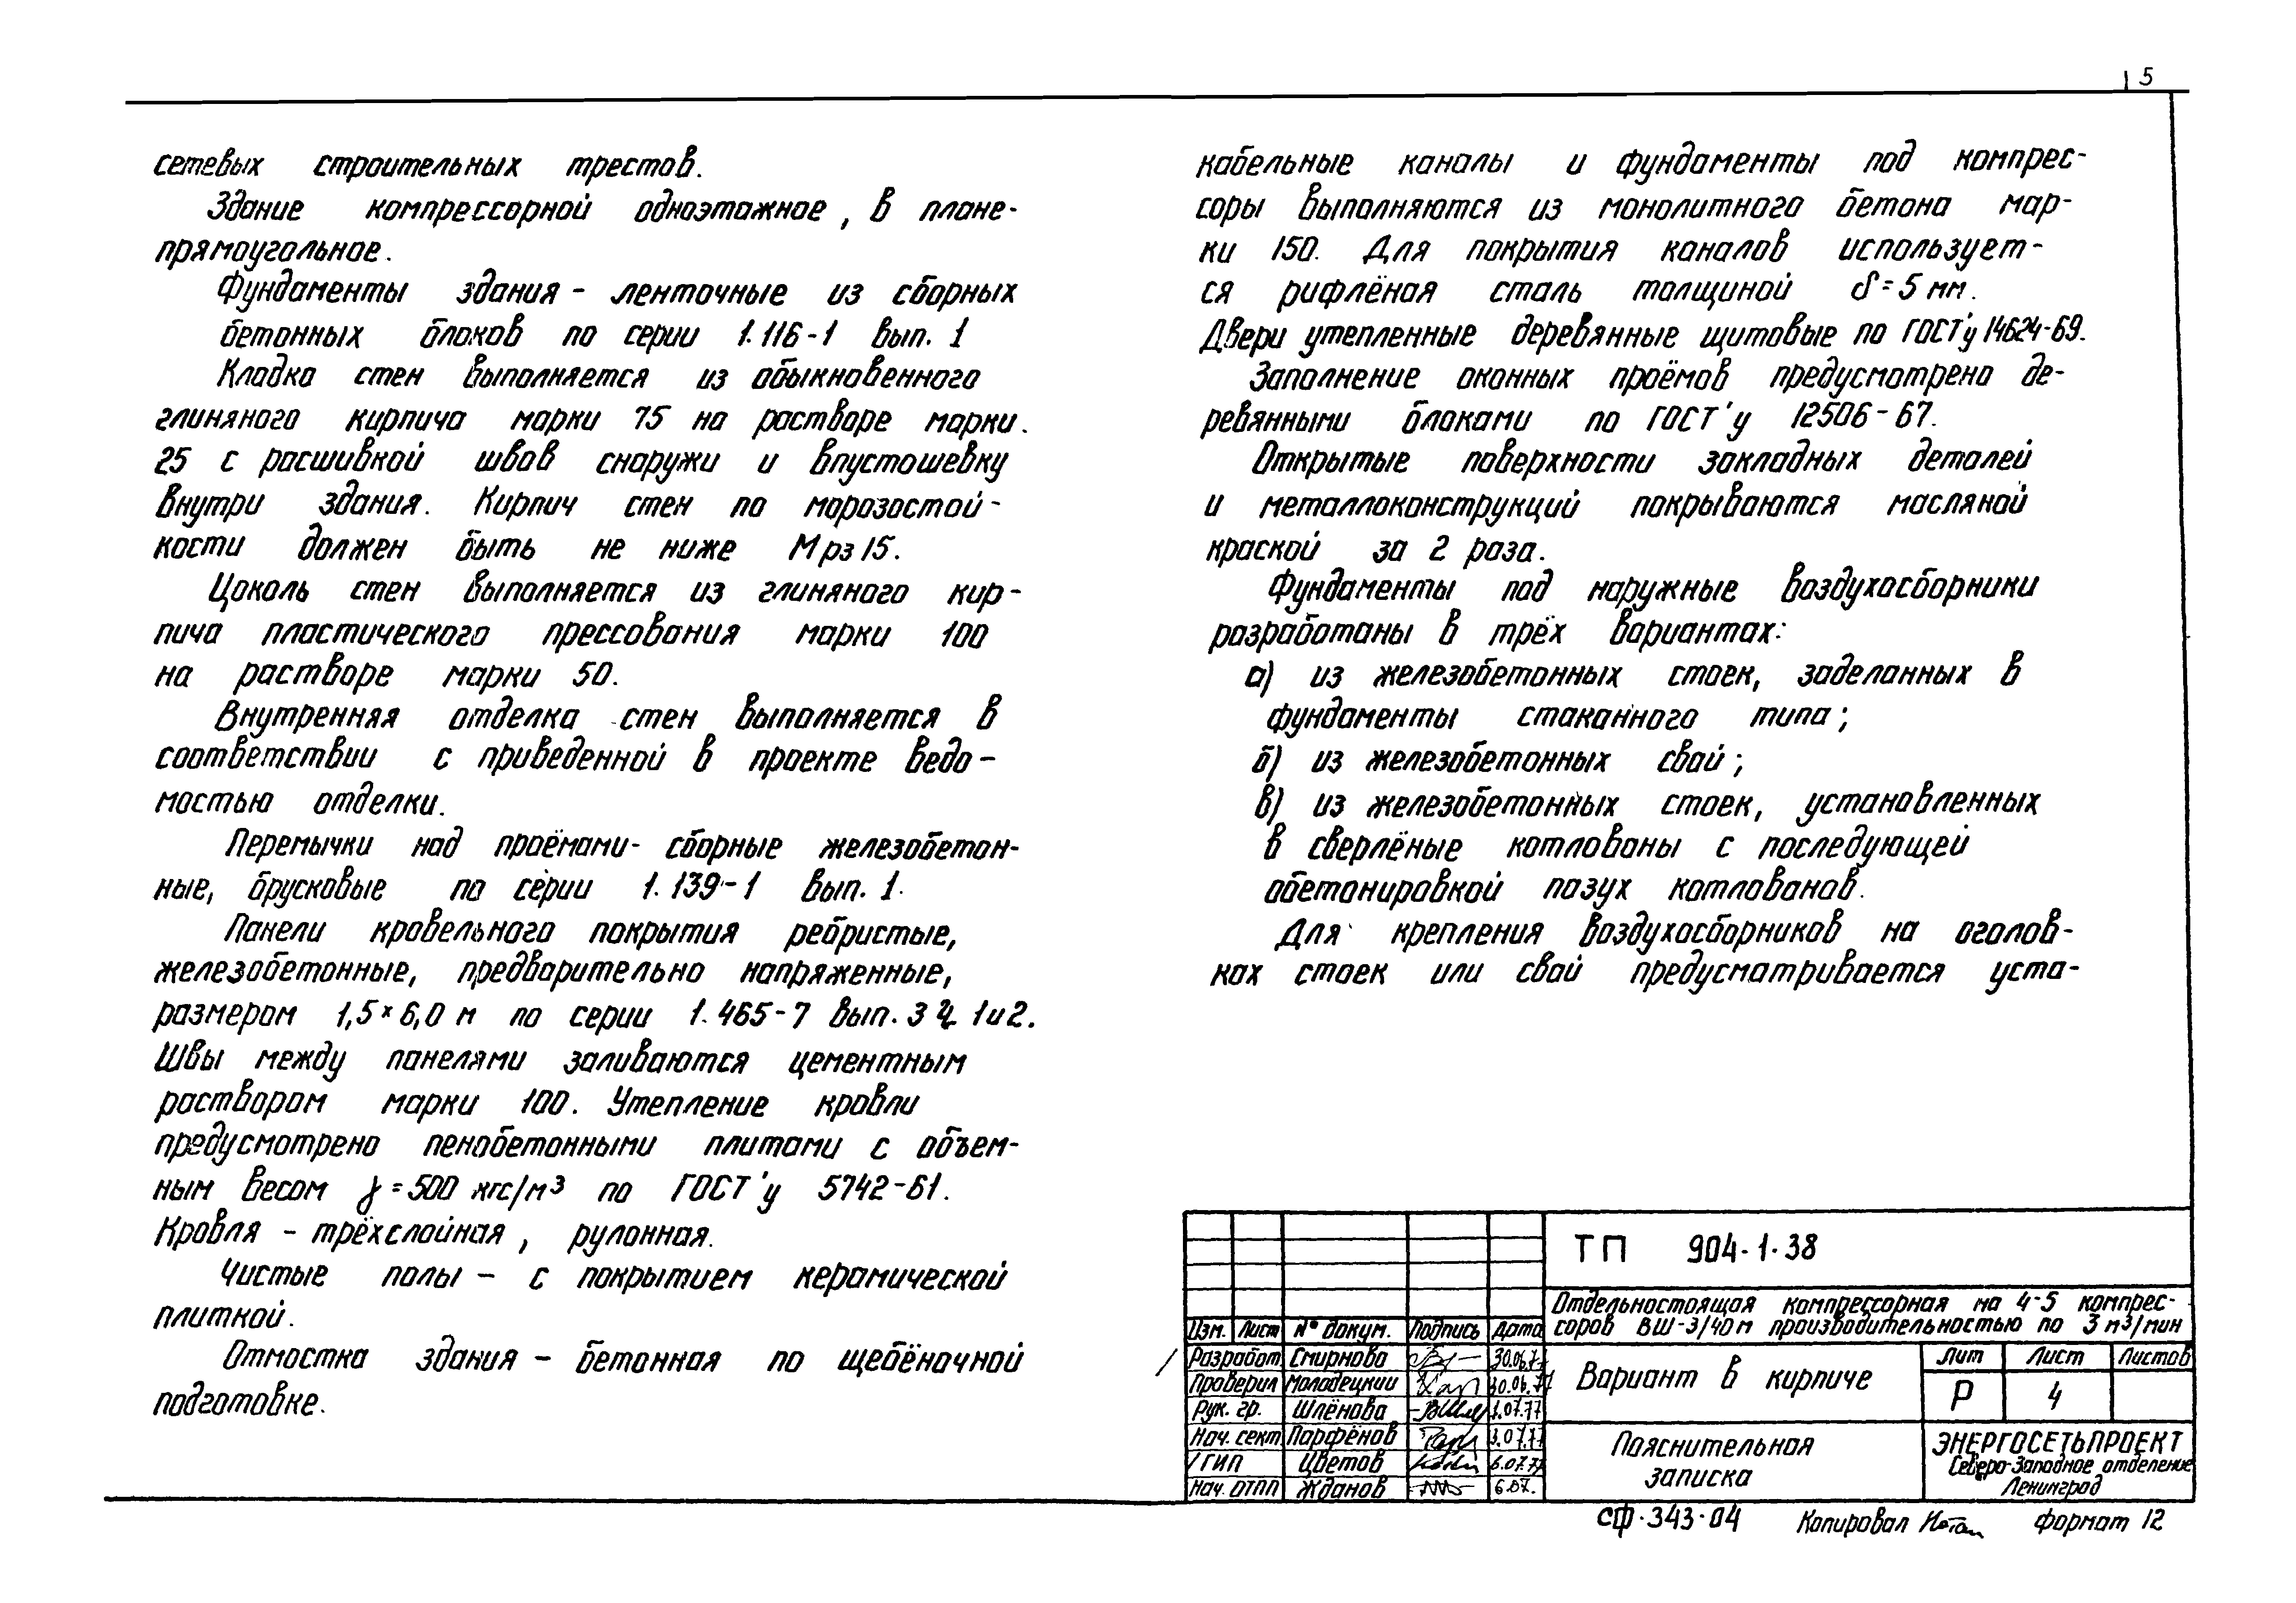 5
сетевых строительных трестов.
Здание компрессорной одноэтажное, в плане-
прямоугольное.
Фундаменты здания - ленточные из сборных
бетонных блоков по серии 1.116-1 вып. 1
Кладка стен выполняется из обыкновенного
глиняного кирпича марки 75 на растворе марки.
25 с расшивкой швов снаружи и впустошевку
внутри здания. Кирпич стен по морозостой-
кости должен быть не ниже Мрз 15.
Цоколь стен выполняется из глиняного кир-
пича пластического прессования марки 100
на растворе марки 50.
Внутренняя отделка стен выполняется в
соответствии с приведенной в проекте ведо-
мостью отделки.
Перемычки над проёмами- сборные железобетон-
ные, брусковые по серии 1.139-1 вып. 1.
Панели кровельного покрытия ребристые,
железобетонные, предварительно напряженные,
размером 1,5×6,0 м по серии 1.465-7 вып. 3 ч. 1 и 2.
Швы между панелями заливаются цементным
раствором марки 100. Утепление кровли
предусмотрено пенобетонными плитами с объем-
ным весом γ=500 кгс/м³ по ГОСТ'у 5742-61.
Кровля - трёхслойная, рулонная.
Чистые полы - с покрытием керамической
плиткой.
Отмостка здания - бетонная по щебёночной
подготовке.
кабельные каналы и фундаменты под компрес-
соры выполняются из монолитного бетона мар-
ки 150. Для покрытия каналов использует-
ся рифлёная сталь толщиной δ=5 мм.
Двери утепленные деревянные щитовые по ГОСТ'у 14624-69.
Заполнение оконных проёмов предусмотрено де-
ревянными блоками по ГОСТ'у 12506-67.
Открытые поверхности закладных деталей
и металлоконструкций покрываются масляной
краской за 2 раза.
Фундаменты под наружные воздухосборники
разработаны в трёх вариантах:
а) из железобетонных стоек, заделанных в
фундаменты стаканного типа;
б) из железобетонных свай;
в) из железобетонных стоек, установленных
в сверлёные котлованы с последующей
обетонировкой пазух котлованов.
Для крепления воздухосборников на оголов-
ках стоек или свай предусматривается уста-
ТП 904-1-38
Отдельностоящая компрессорная на 4-5 компрес-
соров ВШ-3/40м производительностью по 3 м³/мин
Изм. Лист № докум. Подпись Дата
Разработ Смирнова 30.06.77
Проверил Молодецкий 30.06.77
Рук. гр. Шлёнова 1.07.77
Нач. сект Парфёнов 3.07.77
ГИП Цветов 6.07.77
Нач. ОТПП Жданов 6.07.
Вариант в кирпиче
Лит Лист Листов
Р 4
Пояснительная
записка
ЭНЕРГОСЕТЬПРОЕКТ
Северо-Западное отделение
Ленинград
СФ-343-04 Копировал формат 12